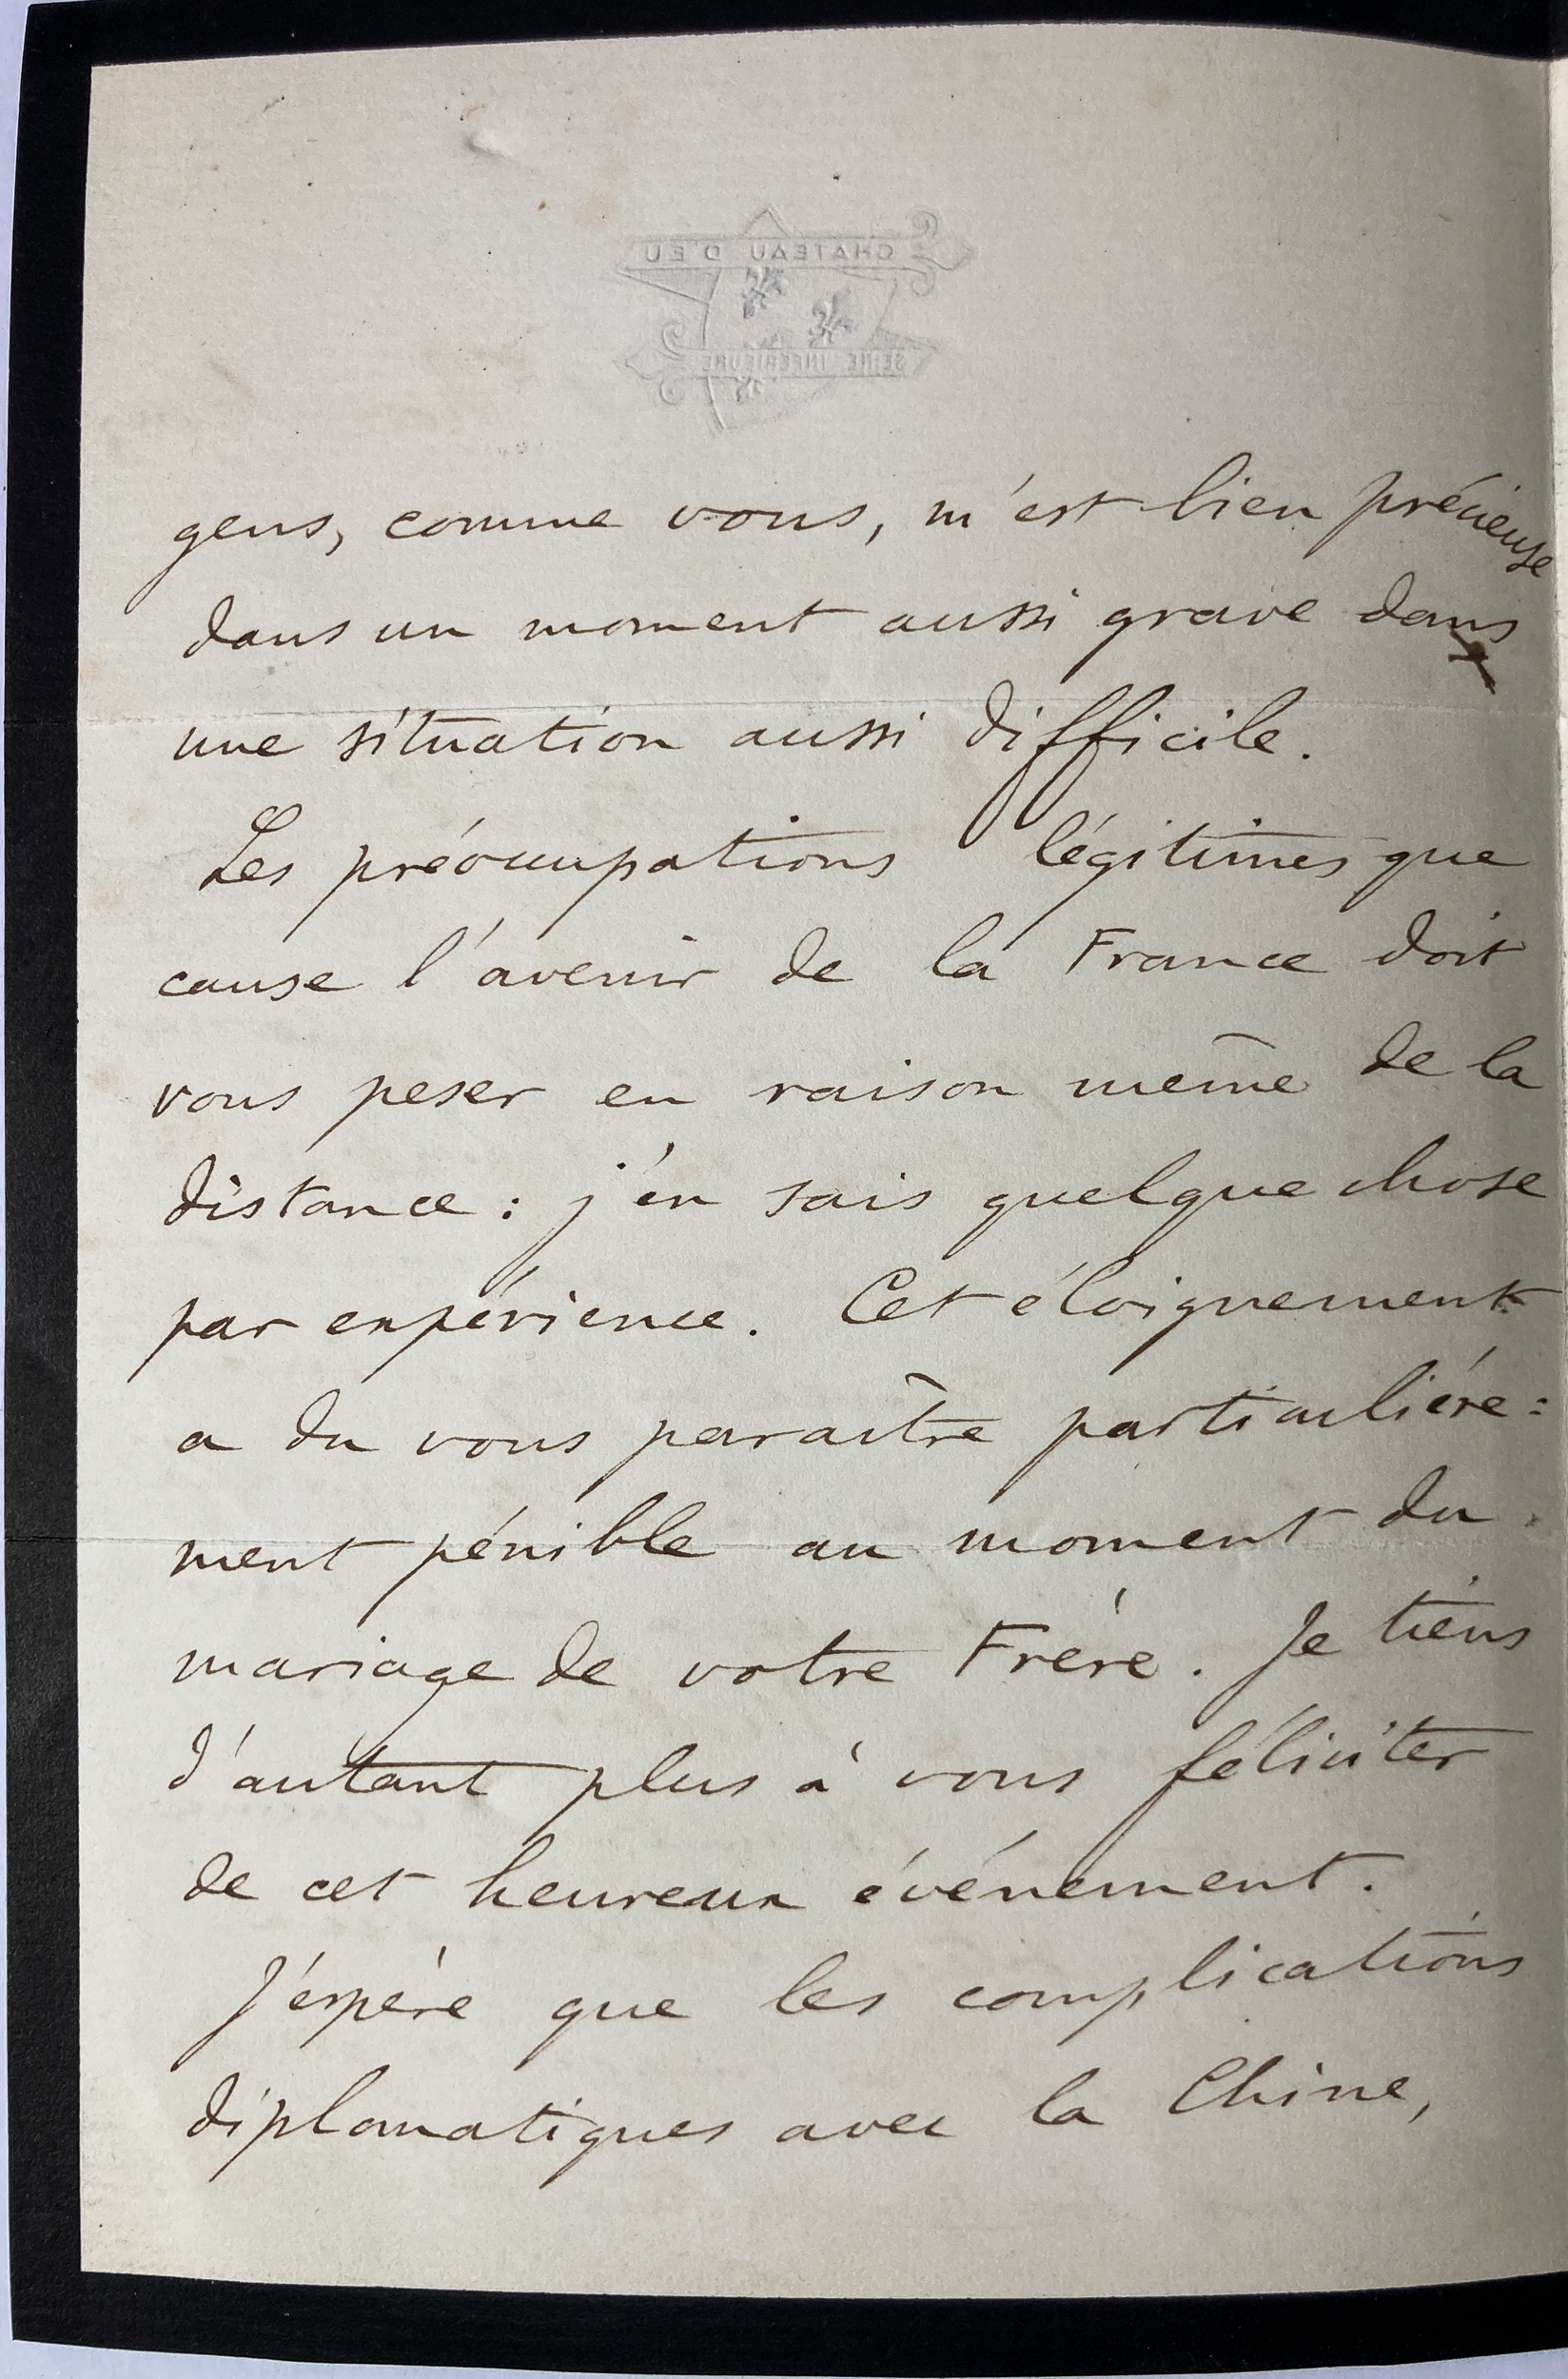 CHATEAU D'EU
SEINE INFERIEURE
gens, comme vous, m'est bien précieuse
dans un moment aussi grave dans
une situation aussi difficile.
Les préoccupations légitimes que
cause l'avenir de la France doit
vous peser en raison même de la
distance : j'en sais quelque chose
par expérience. Cet éloignement
a du vous paraître particuliére=
ment pénible au moment du
mariage de votre Frère. Je tiens
d'autant plus à vous féliciter
de cet heureux événement.
J'éspère que les complications
diplomatiques avec la Chine,